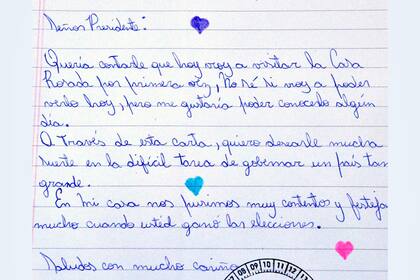 Señor Presidente:
Quería contarle que hoy voy a visitar la Casa
Rosada por primera vez, No sé si voy a poder
verlo hoy, pero me gustaría poder conocerlo algún
día.
A través de esta carta, quiero desearle mucha
suerte en la difícil tarea de gobernar un país tan
grande.
En mi casa nos pusimos muy contentos y festeja
mucho cuando usted ganó las elecciones.
Saludos con mucho cariño
8 9 10 11 12